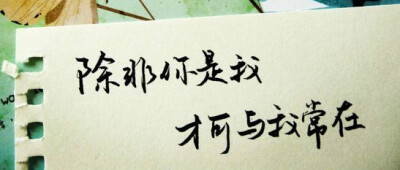 除非你是我
才可与我常在